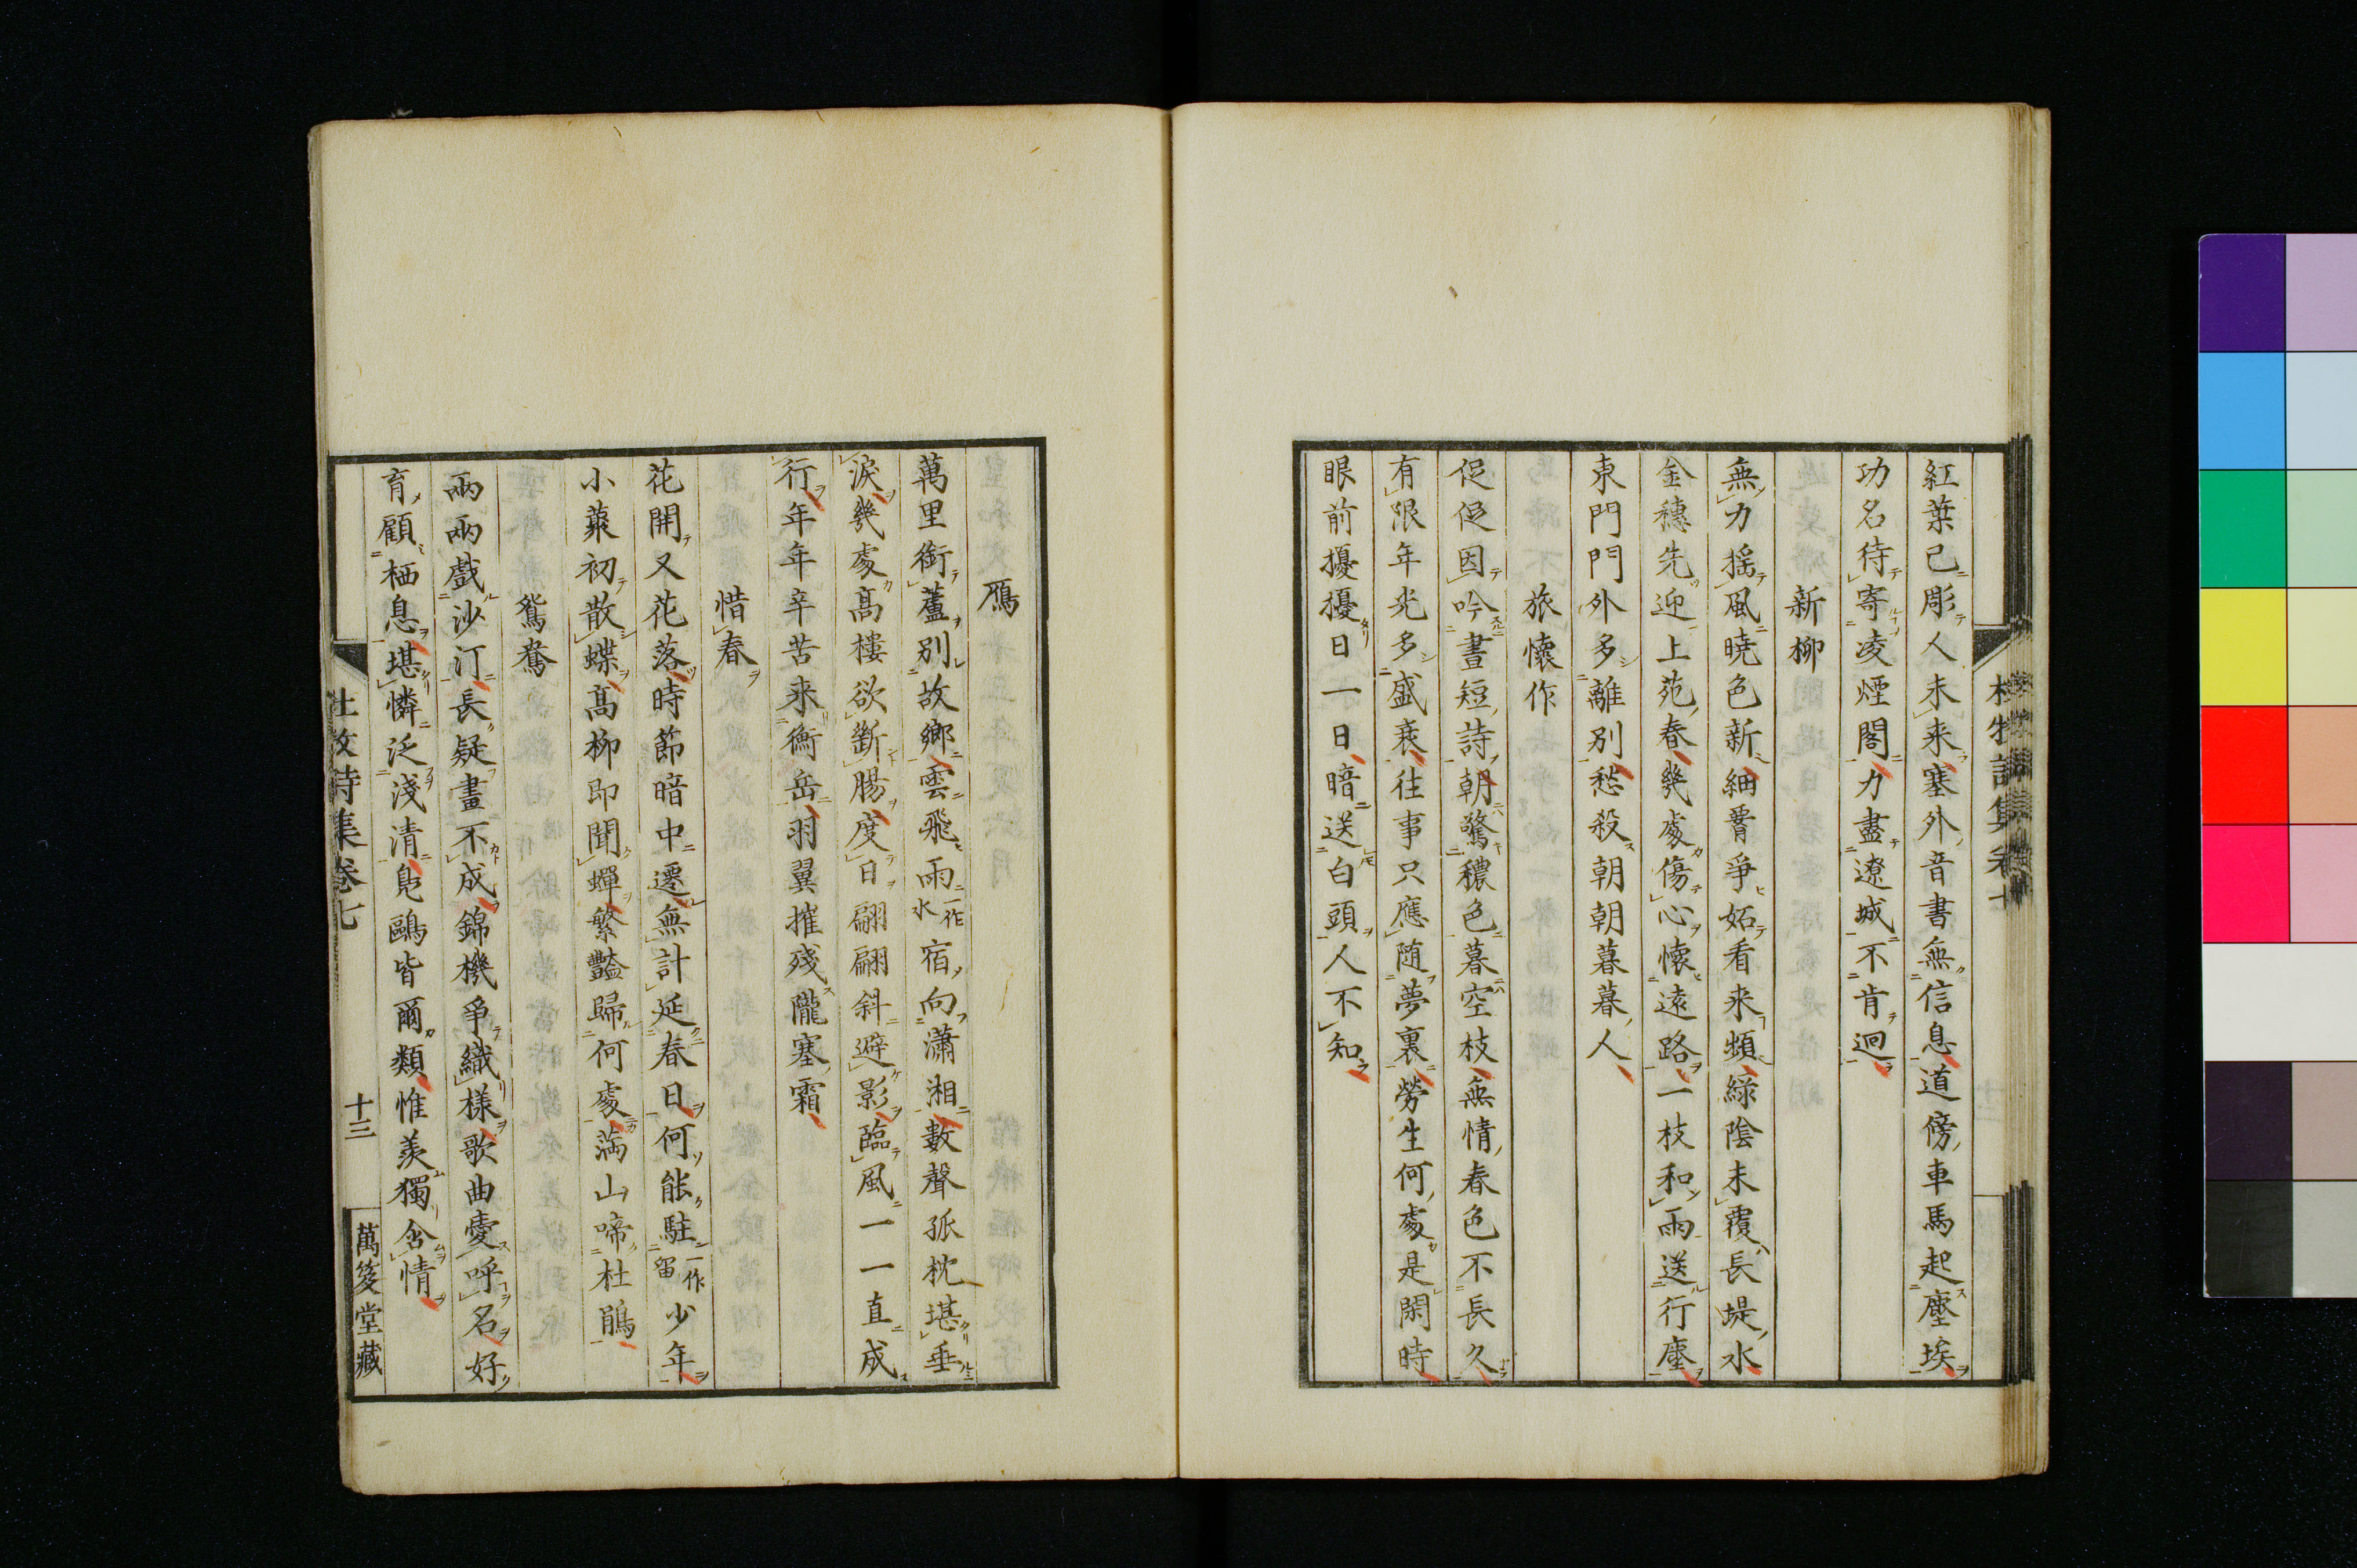 紅葉已彫人未来塞外音書無信息道傍車馬起塵埃
功名待寄凌煙閣力盡遼城不肯迴
新柳
無力揺風曉色新細眷爭妬看来頻綠陰未覆長堤水
金穗先迎上苑春幾處傷心懷遠路一枝和雨送行塵
東門門外多離別愁殺朝朝暮暮人
旅懷作
促促因吟晝短詩朝驚穠色暮空枝無情春色不長久
有限年光多盛衰往事只應隨夢裏勞生何處是閑時
眼前擾擾日一日暗送白頭人不知
杜牧詩集卷七
鴈
萬里銜蘆別故鄉雲飛雨一作水宿向瀟湘數聲孤枕堪垂
淚幾處高樓欲斷腸度日翩翩斜避影臨風一一直成
行年年辛苦来衡岳羽翼摧殘隴塞霜
惜春
花開又花落時節暗中遷無計延春日何能駐一作留少年
小藂初散蝶高柳即聞蟬繁豔歸何處滿山啼杜鵑
鴛鴦
兩兩戲沙汀長疑畫不成錦機爭織樣歌曲愛呼名好
育顧栖息堪憐泛淺清鳧鷗皆爾類惟羨獨含情
杜牧詩集卷七
十三
萬笈堂藏